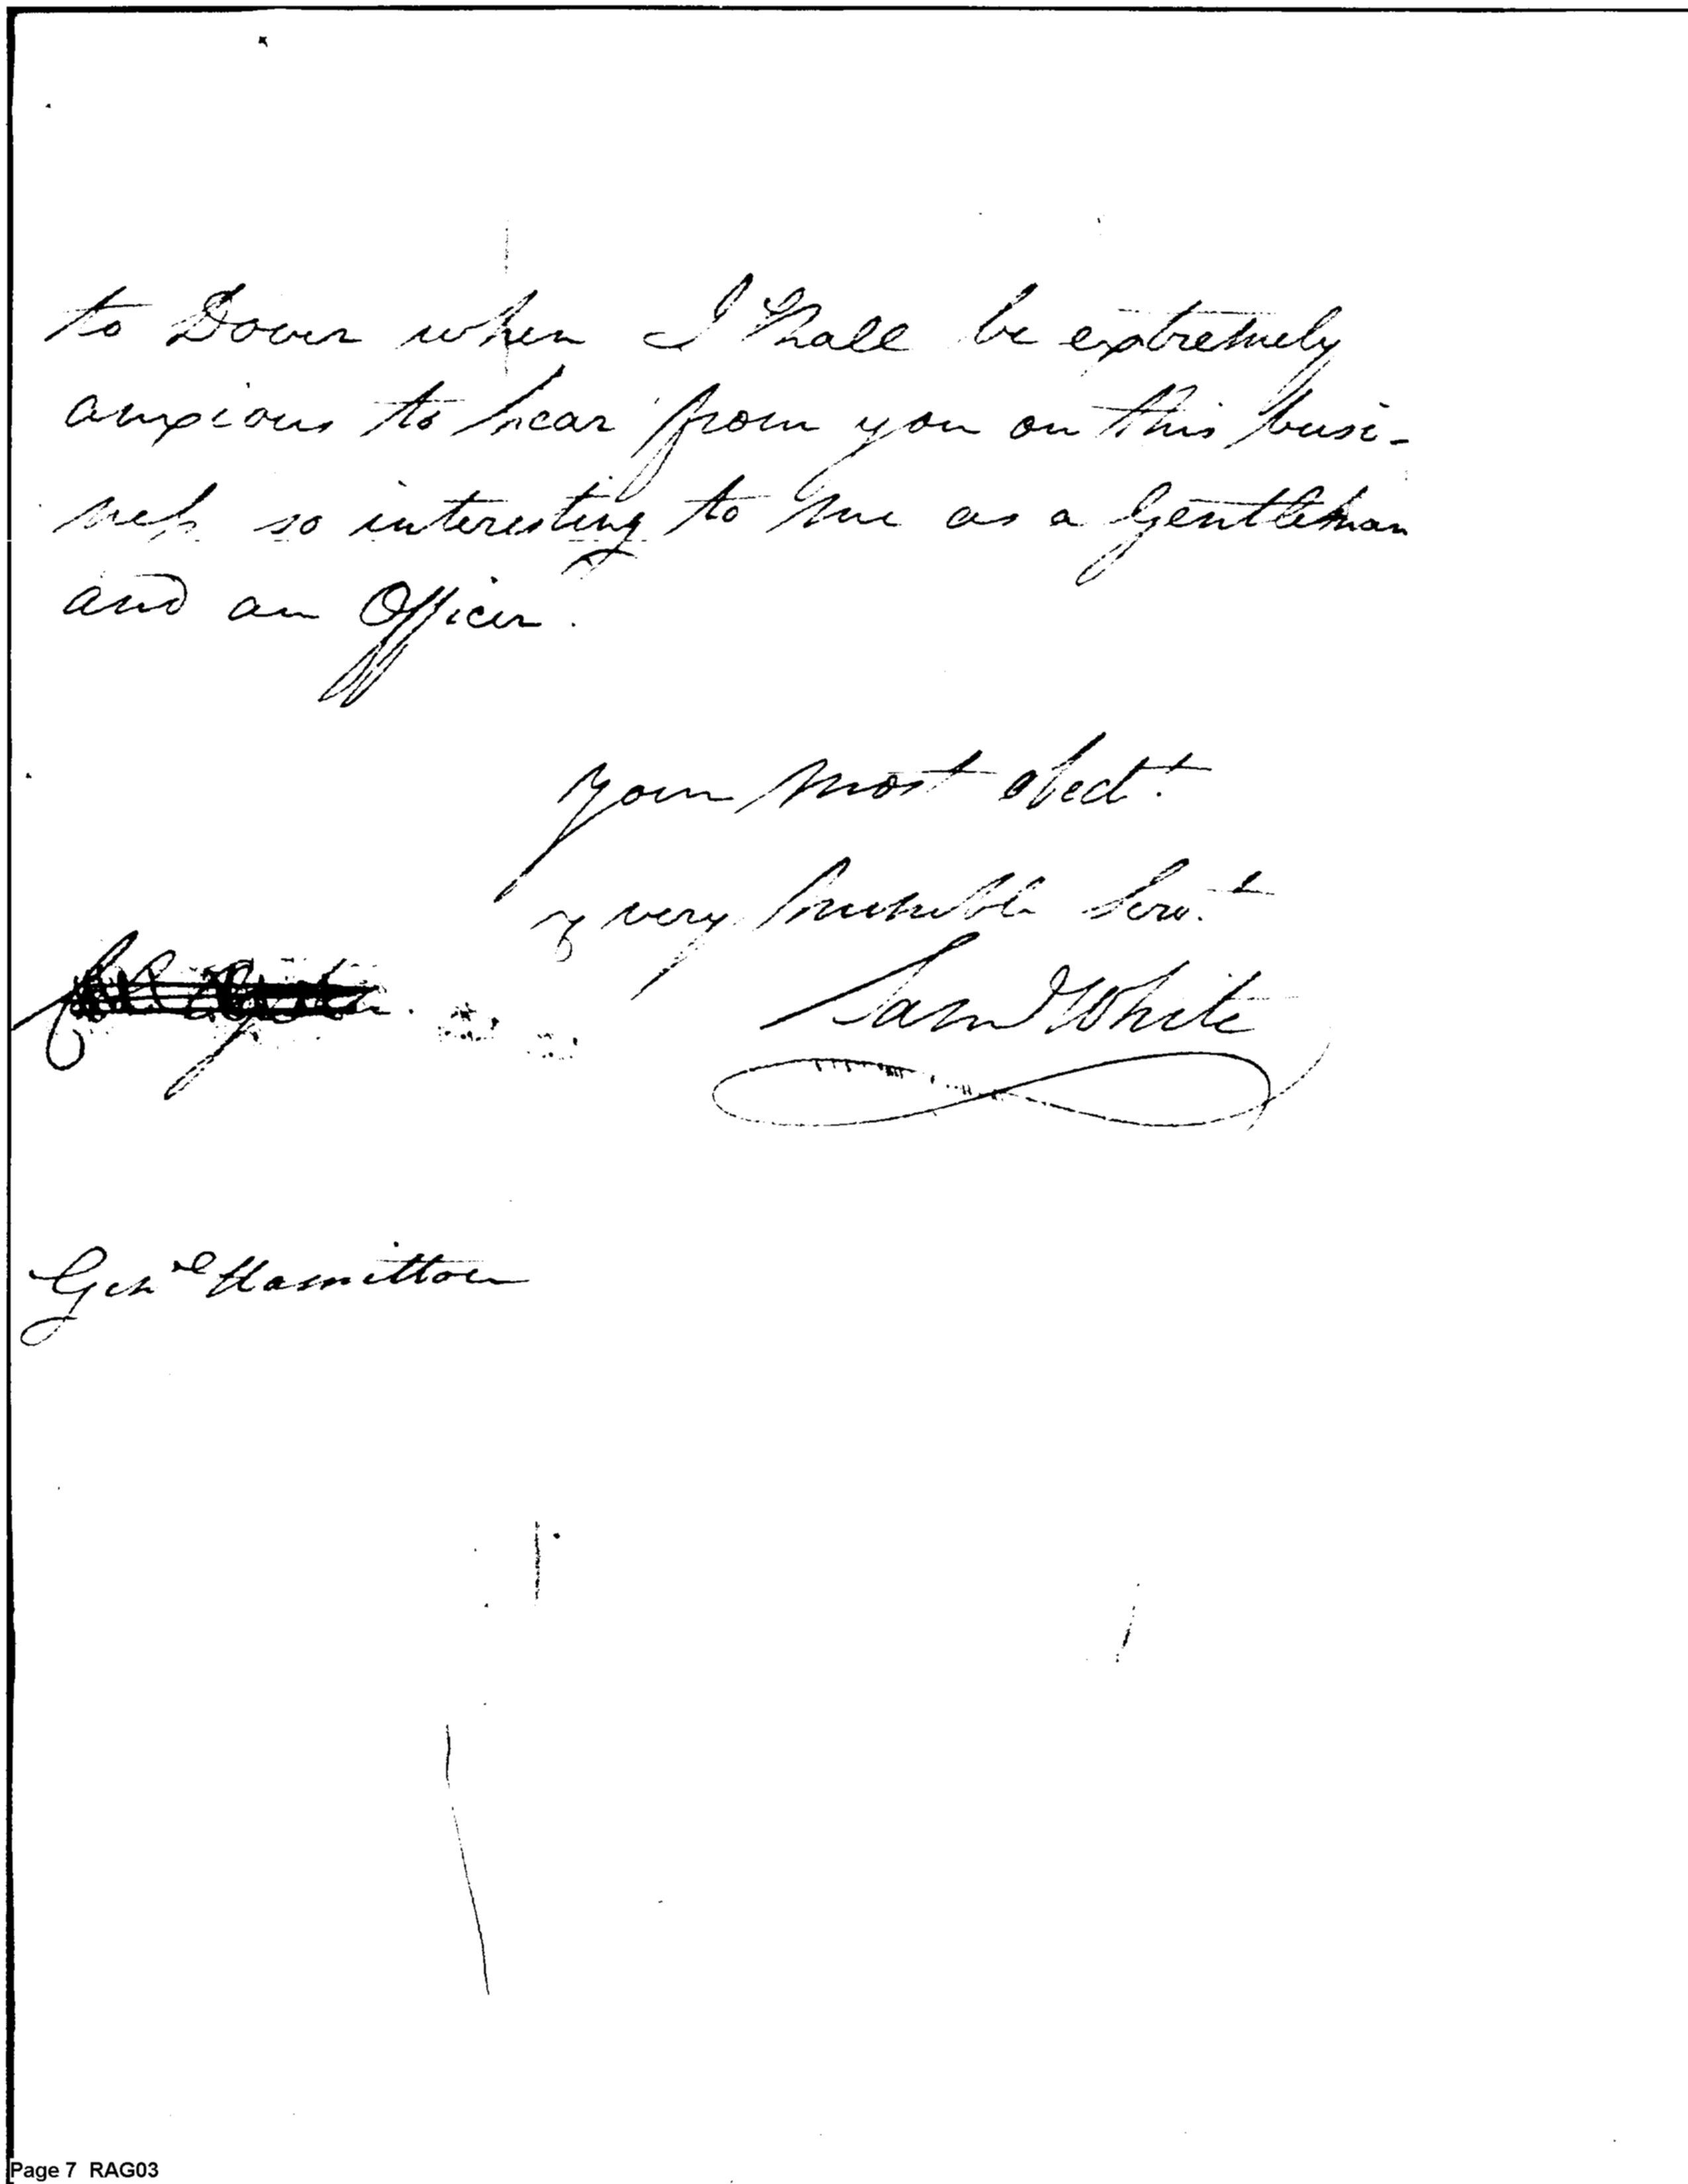 to Dover when I shall be extremely
anxious to hear from you on this busi-
ness so interesting to me as a Gentleman
and an Officer.
Your most obedt.
& very humble Servt
Sam White
Genl Hamilton
Page 7 RAG03